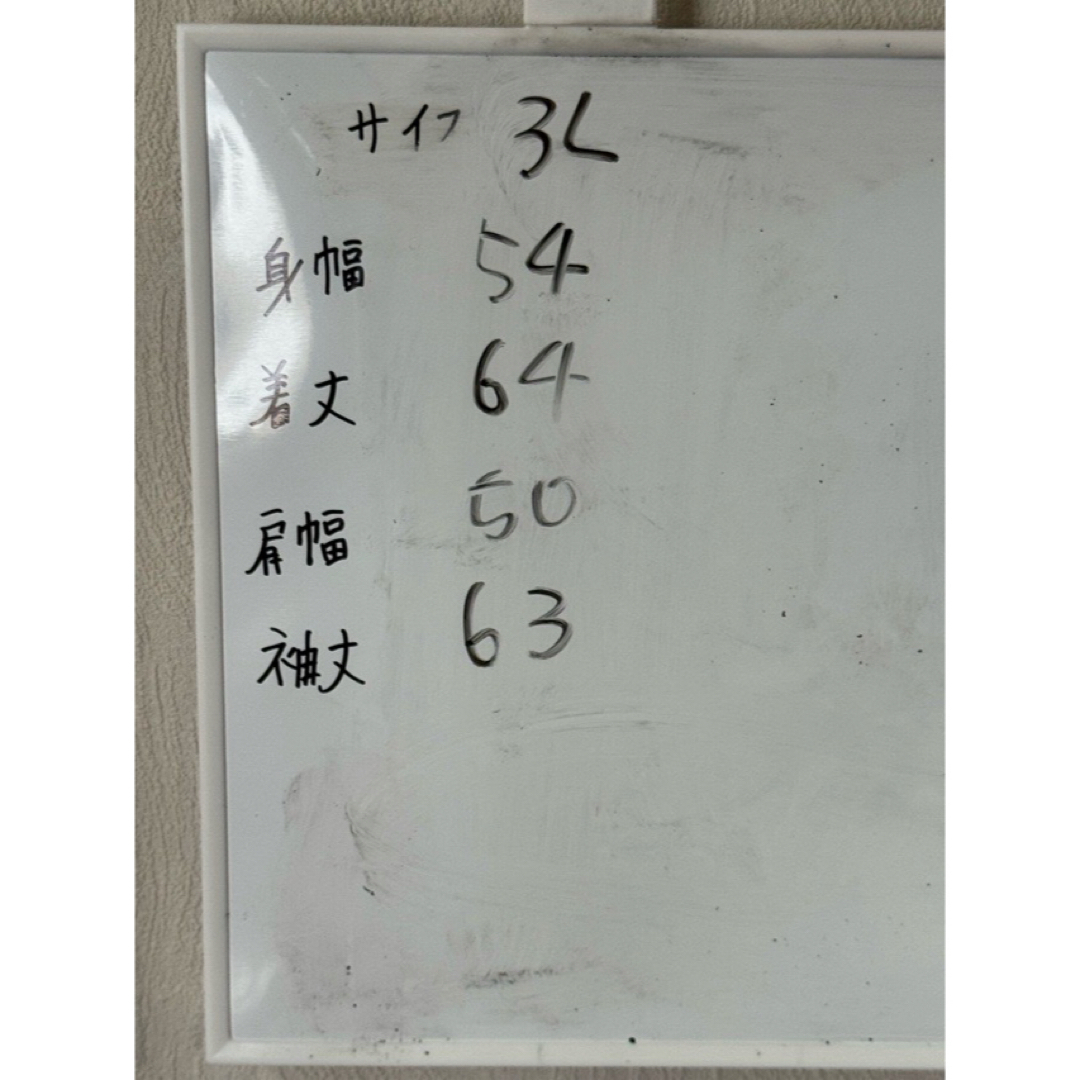 サイフ 3L
身幅 54
着丈 64
肩幅 50
袖丈 63